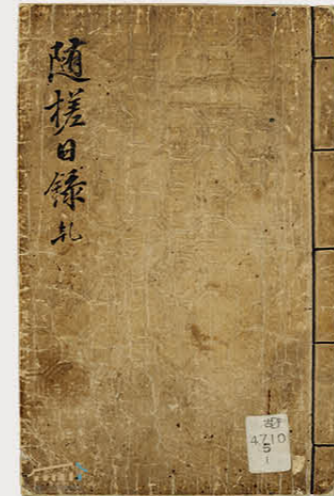 随槎日錄 乹
4710
5
1